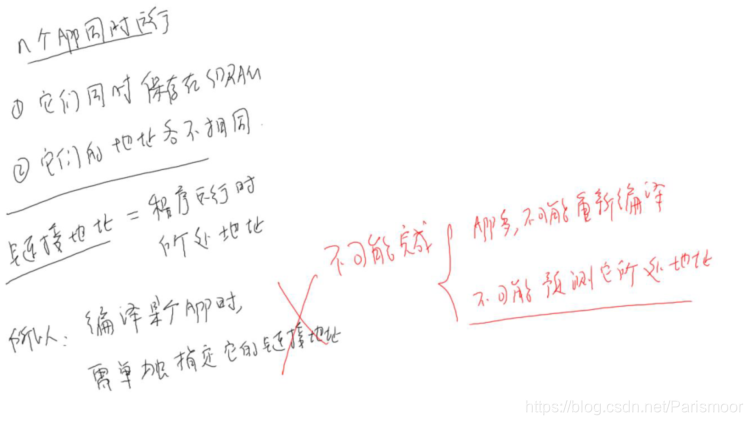 n个App同时运行
① 它们同时保存在SDRAM
② 它们的地址各不相同.
链接地址 = 程序运行时
所处地址
所以: 编译某个App时,
需单独指定它的链接地址
不可能完成
App多,不可能重新编译
不可能预测它所处地址
https://blog.csdn.net/Parismoor